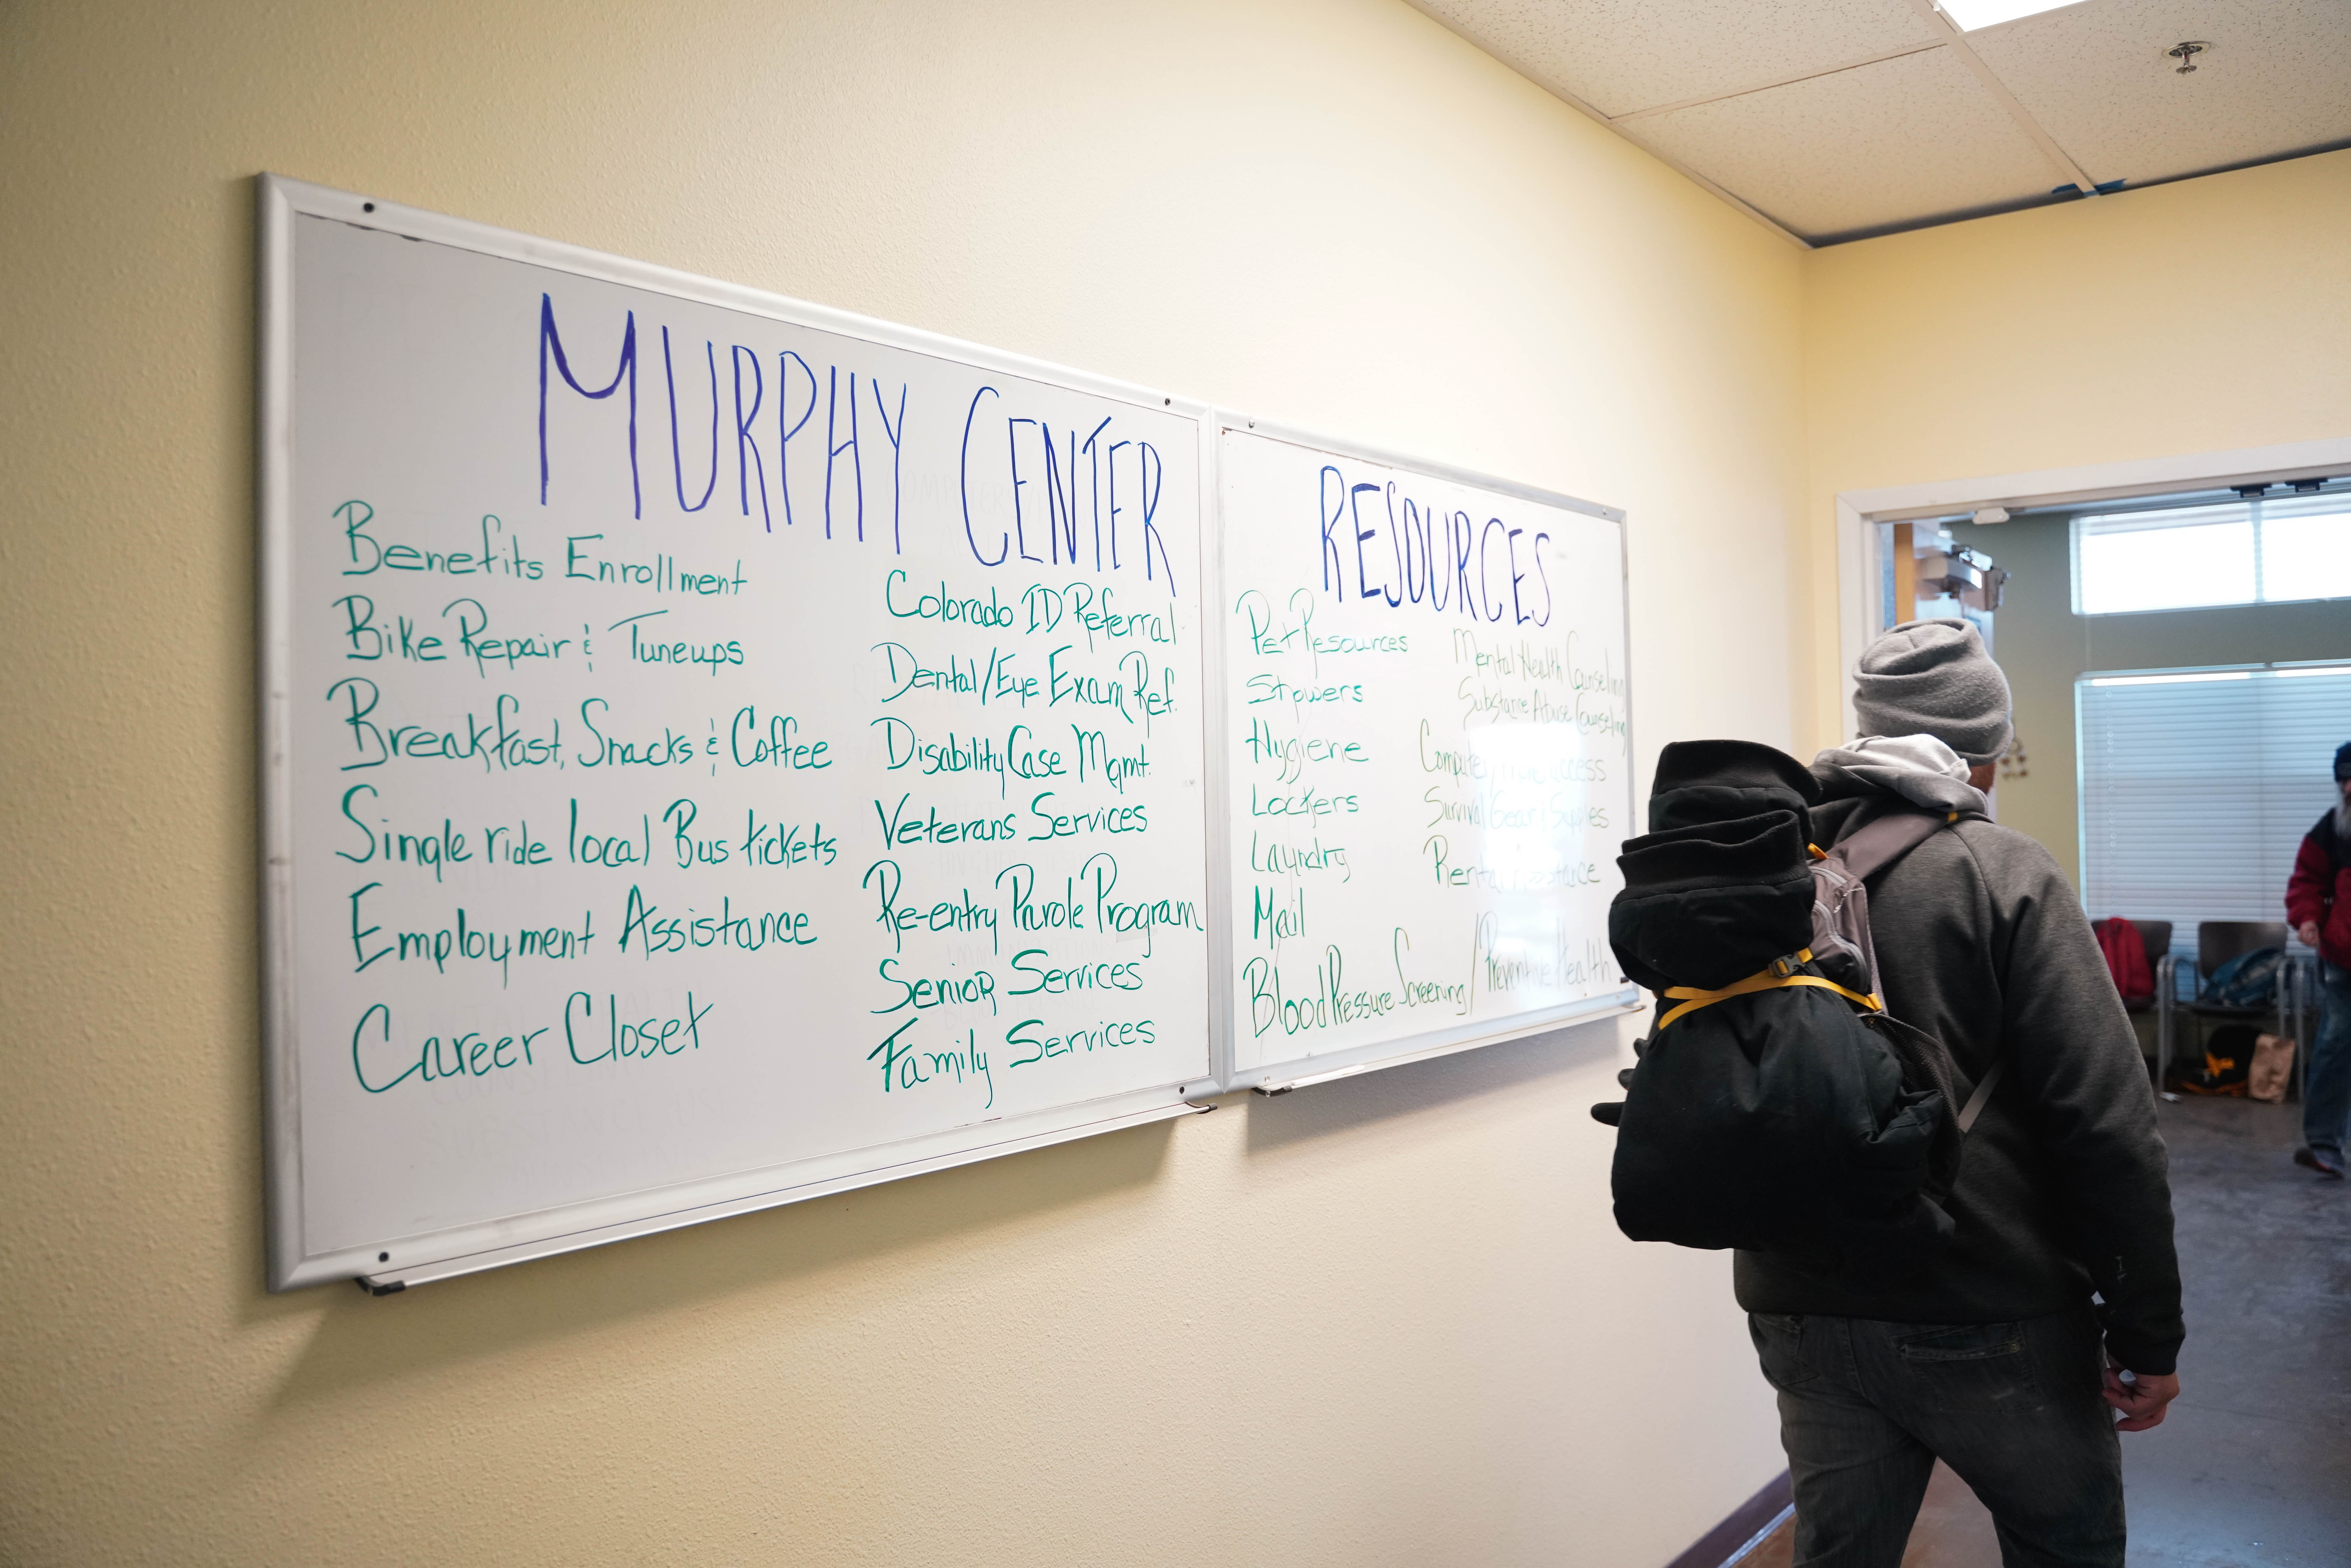 MURPHY CENTER
Benefits Enrollment
Bike Repair & Tuneups
Breakfast, Snacks & Coffee
Single ride local Bus tickets
Employment Assistance
Career Closet
Colorado ID Referral
Dental/Eye Exam Ref.
Disability Case Mgmt.
Veterans Services
Re-entry Parole Program
Senior Services
Family Services
RESOURCES
Pet Resources
Showers
Hygiene
Lockers
Laundry
Mail
Blood Pressure Screening/Preventive Health
Mental Health Counseling
Substance Abuse Counseling
Computer Access
Survival Gear Supplies
Rental Assistance